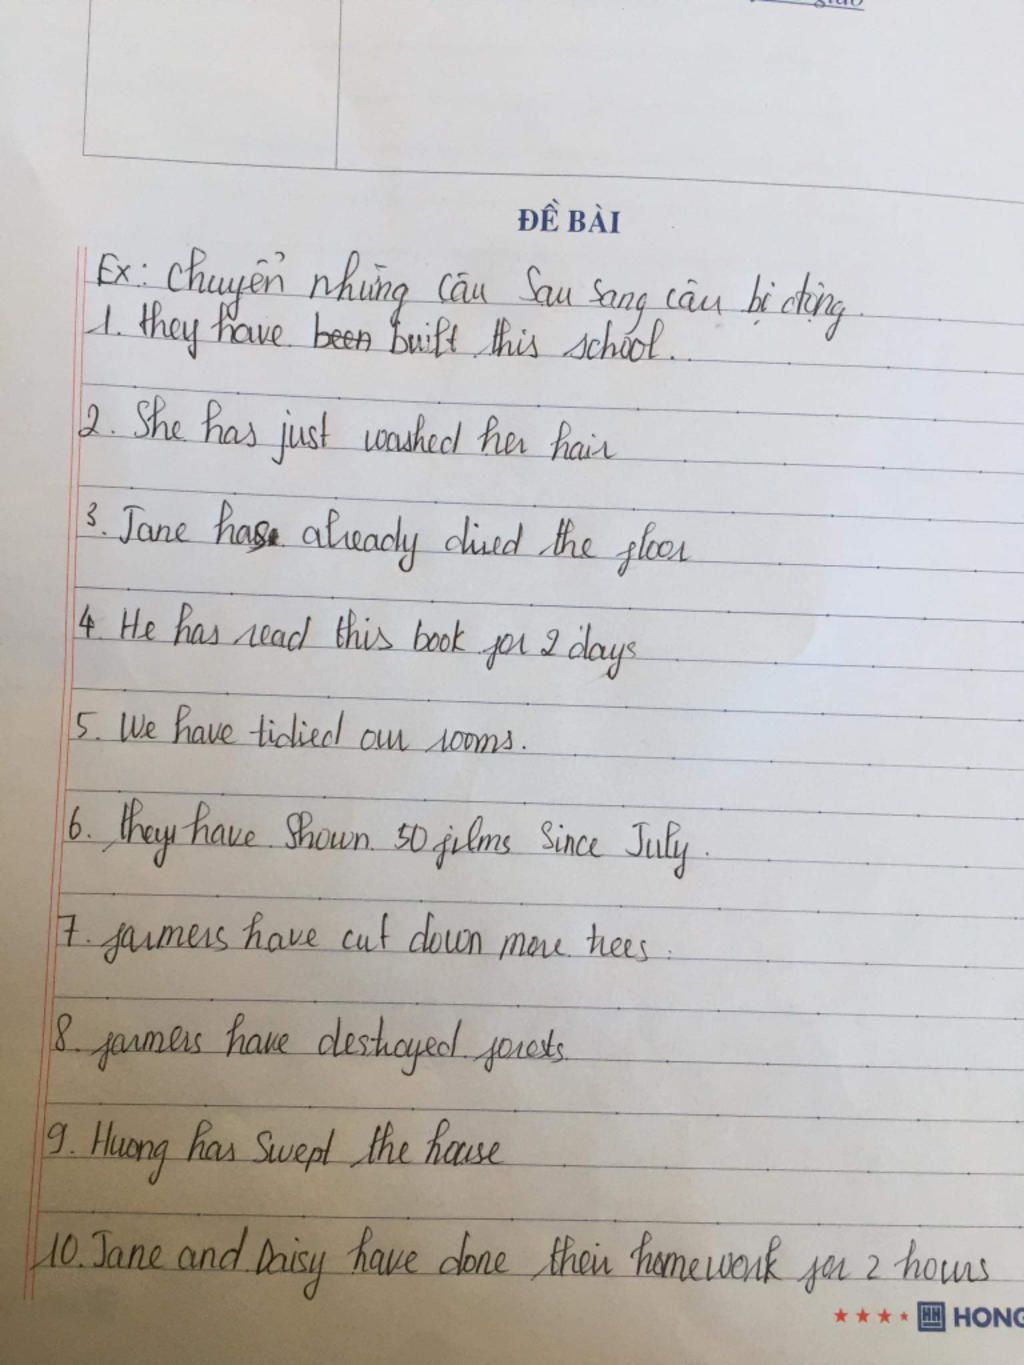 ĐỀ BÀI
Ex: Chuyển những câu sau sang câu bị động.
1. they have been built this school.
2. She has just washed her hair
3. Jane has already dried the floor
4. He has read this book for 2 days
5. We have tidied our rooms.
6. they have shown 50 films since July.
7. farmers have cut down more trees.
8. farmers have destroyed forests.
9. Huong has swept the house
10. Jane and Daisy have done their homework for 2 hours
HH HONG